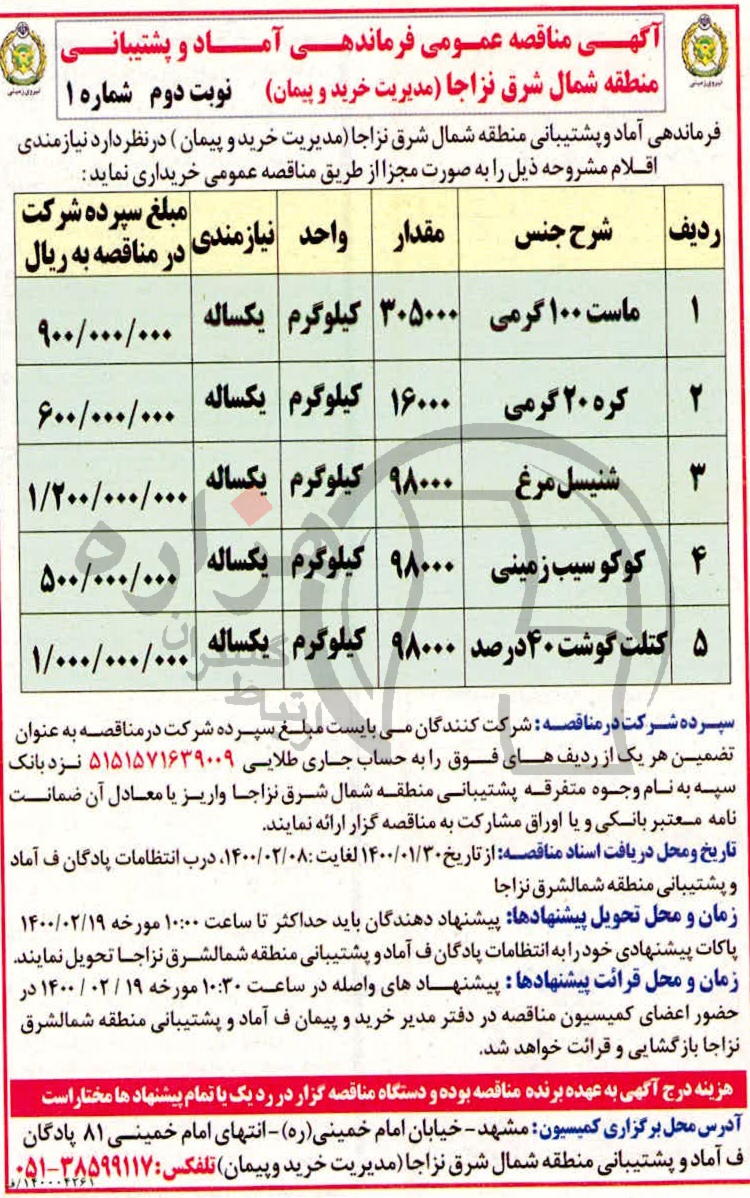 نیروی زمینی
نیروی زمینی
آگهی مناقصه عمومی فرماندهی آماد و پشتیبانی
منطقه شمال شرق نزاجا (مدیریت خرید و پیمان) نوبت دوم شماره ۱
فرماندهی آماد و پشتیبانی منطقه شمال شرق نزاجا (مدیریت خرید و پیمان) در نظر دارد نیازمندی
اقلام مشروحه ذیل را به صورت مجزا از طریق مناقصه عمومی خریداری نماید:
ردیف شرح جنس مقدار واحد نیازمندی مبلغ سپرده شرکت
در مناقصه به ریال
۱ ماست ۱۰۰ گرمی ۳۰۵۰۰۰ کیلوگرم یکساله ۹۰۰/۰۰۰/۰۰۰
۲ کره ۲۰ گرمی ۱۶۰۰۰ کیلوگرم یکساله ۶۰۰/۰۰۰/۰۰۰
۳ شنیسل مرغ ۹۸۰۰۰ کیلوگرم یکساله ۱/۲۰۰/۰۰۰/۰۰۰
۴ کوکو سیب زمینی ۹۸۰۰۰ کیلوگرم یکساله ۵۰۰/۰۰۰/۰۰۰
۵ کتلت گوشت ۴۰ درصد ۹۸۰۰۰ کیلوگرم یکساله ۱/۰۰۰/۰۰۰/۰۰۰
هزاره
ارتباط گستران
سپرده شرکت در مناقصه: شرکت کنندگان می بایست مبلغ سپرده شرکت در مناقصه به عنوان
تضمین هر یک از ردیف های فوق را به حساب جاری طلایی ۵۱۵۱۵۷۱۶۳۹۰۰۹ نزد بانک
سپه به نام وجوه متفرقه پشتیبانی منطقه شمال شرق نزاجا واریز یا معادل آن ضمانت
نامه معتبر بانکی و یا اوراق مشارکت به مناقصه گزار ارائه نمایند.
تاریخ و محل دریافت اسناد مناقصه: از تاریخ ۱۴۰۰/۰۱/۳۰ لغایت: ۱۴۰۰/۰۲/۰۸، درب انتظامات پادگان ف آماد
و پشتیبانی منطقه شمالشرق نزاجا
زمان و محل تحویل پیشنهادها: پیشنهاد دهندگان باید حداکثر تا ساعت ۱۰:۰۰ مورخه ۱۴۰۰/۰۲/۱۹
پاکات پیشنهادی خود را به انتظامات پادگان ف آماد و پشتیبانی منطقه شمالشرق نزاجا تحویل نمایند.
زمان و محل قرائت پیشنهادها: پیشنهاد های واصله در ساعت ۱۰:۳۰ مورخه ۱۹ / ۰۲ / ۱۴۰۰ در
حضور اعضای کمیسیون مناقصه در دفتر مدیر خرید و پیمان ف آماد و پشتیبانی منطقه شمالشرق
نزاجا بازگشایی و قرائت خواهد شد.
هزینه درج آگهی به عهده برنده مناقصه بوده و دستگاه مناقصه گزار در رد یک یا تمام پیشنهاد ها مختار است
آدرس محل برگزاری کمیسیون: مشهد-خیابان امام خمینی(ره)-انتهای امام خمینی ۸۱ پادگان
ف آماد و پشتیبانی منطقه شمال شرق نزاجا (مدیریت خرید وپیمان) تلفکس: ۳۸۵۹۹۱۱۷-۰۵۱
۱۴۰۰۰۴۲۶۱/ف